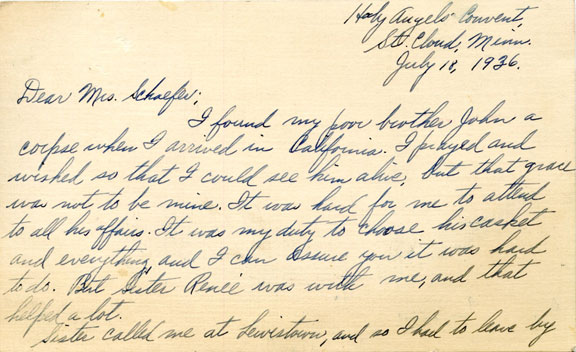 Holy Angels Convent,
St. Cloud, Minn.
July 18, 1936.
Dear Mrs. Schaefer;
I found my poor brother John a
corpse when I arrived in California. I prayed and
wished so that I could see him alive, but that grace
was not to be mine. It was hard for me to attend
to all his affairs. It was my duty to choose his casket
and everything, and I can assure you it was hard
to do. But Sister Renée was with me, and that
helped a lot.
Sister called me at Lewistown, and so I had to leave by